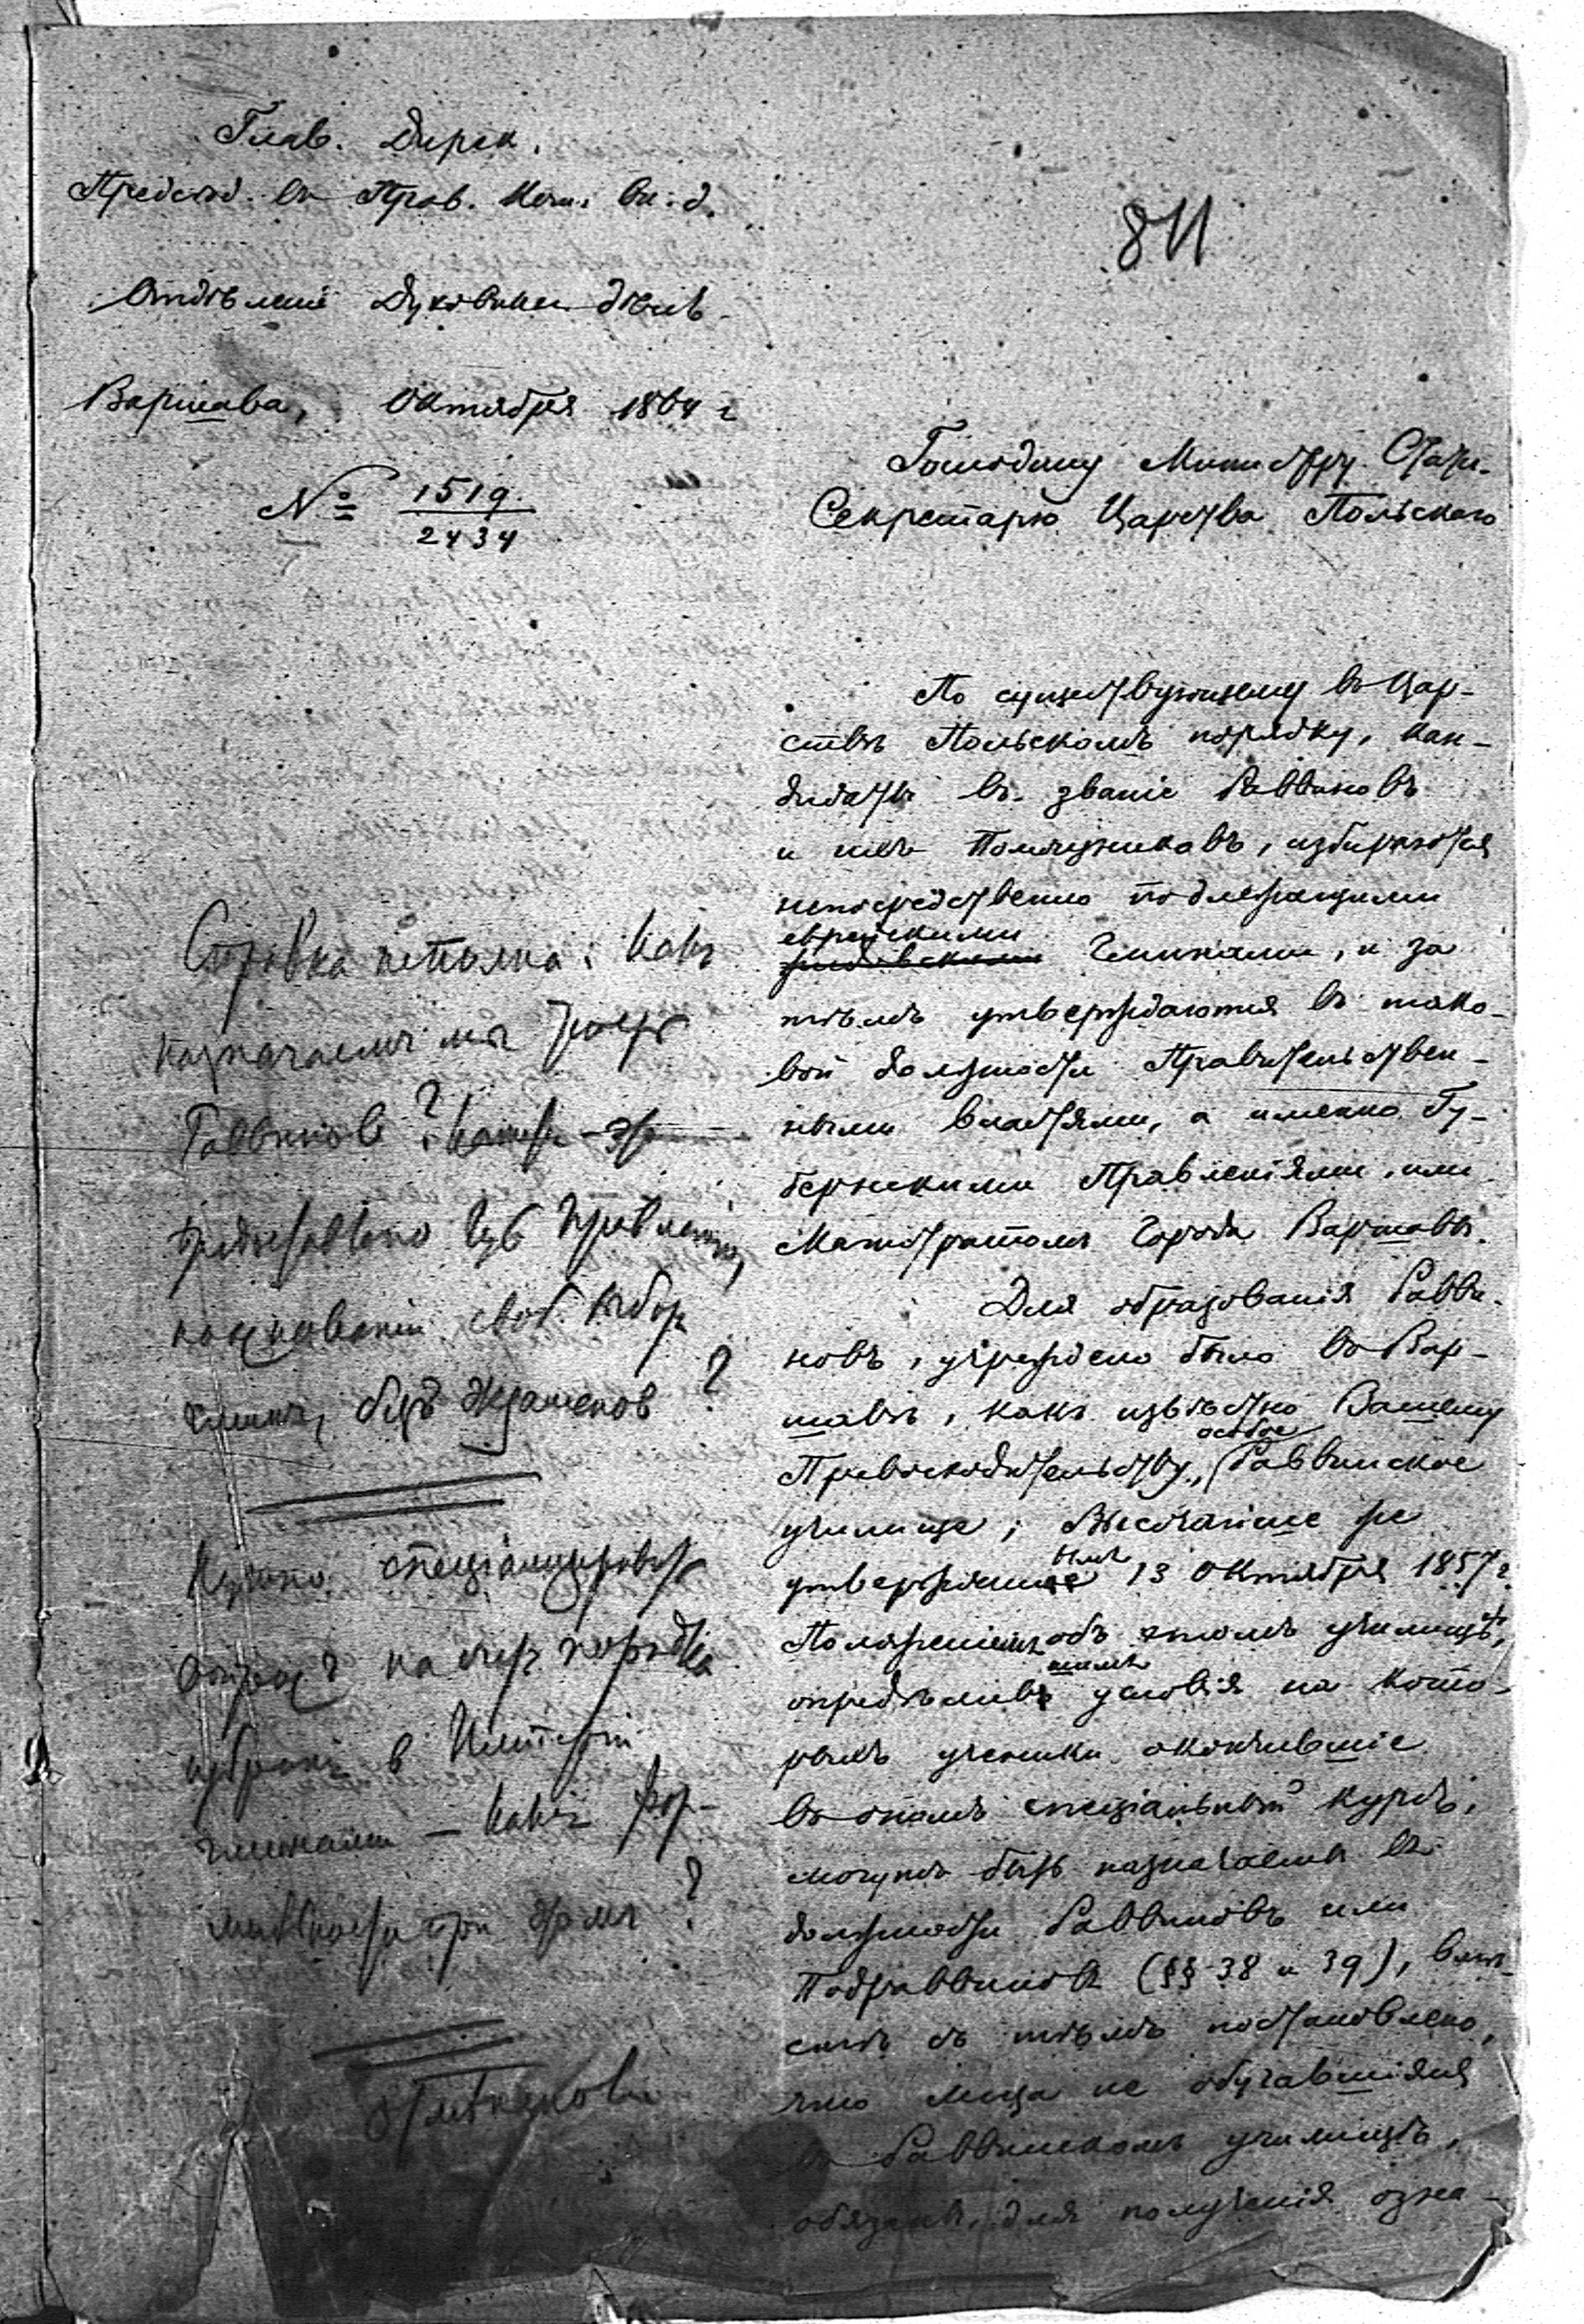 Глав. Дирек.
Предсѣд. въ Прав. Ком. Вн. д.
Отдѣленіе Духовныхъ дѣлъ
Варшава, Октября 1864 г
№ 1519
2434
811
Господину Министру Статс-
Секретарю Царства Польскаго
По существующему въ Цар-
ствѣ Польскомъ порядку, кан-
дидаты въ званіе Раввиновъ
и ихъ Помощниковъ, избираются
непосредственно подлежащими
еврейскими
жидовскими Гминами, и за
тѣмъ утверждаются въ тако-
вой должности Правительствен-
ными властями, а именно Гу-
бернскими Правленіями, или
Магистратомъ Города Варшавы.
Для образованія Равви-
новъ, учреждено было въ Вар-
шавѣ, какъ извѣстно Вашему
особое
Превосходительству, Раввинское
училище; Высочайше же
утвержденное 13 Октября 1857 г.
Положеніемъ объ этомъ училищѣ,
опредѣливъ условія на кото-
рыхъ ученики окончившіе
въ ономъ спеціальный курсъ,
могутъ быть назначаемы въ
должности Раввиновъ или
Подраввиновъ (§§ 38 и 39), вмѣ-
стѣ съ тѣмъ постановлено,
что лица не обучавшіяся
въ Раввинскомъ училищѣ,
обязаны, для полученія озна-
Справка неполна: какъ
назначаемы
Раввинов?
предоставлено Губ Правленію,
свод. выбор
гмины, безъ экзаменов?
Нужно
порядка
в Имперіи
гминами — какія фор-
при этомъ?